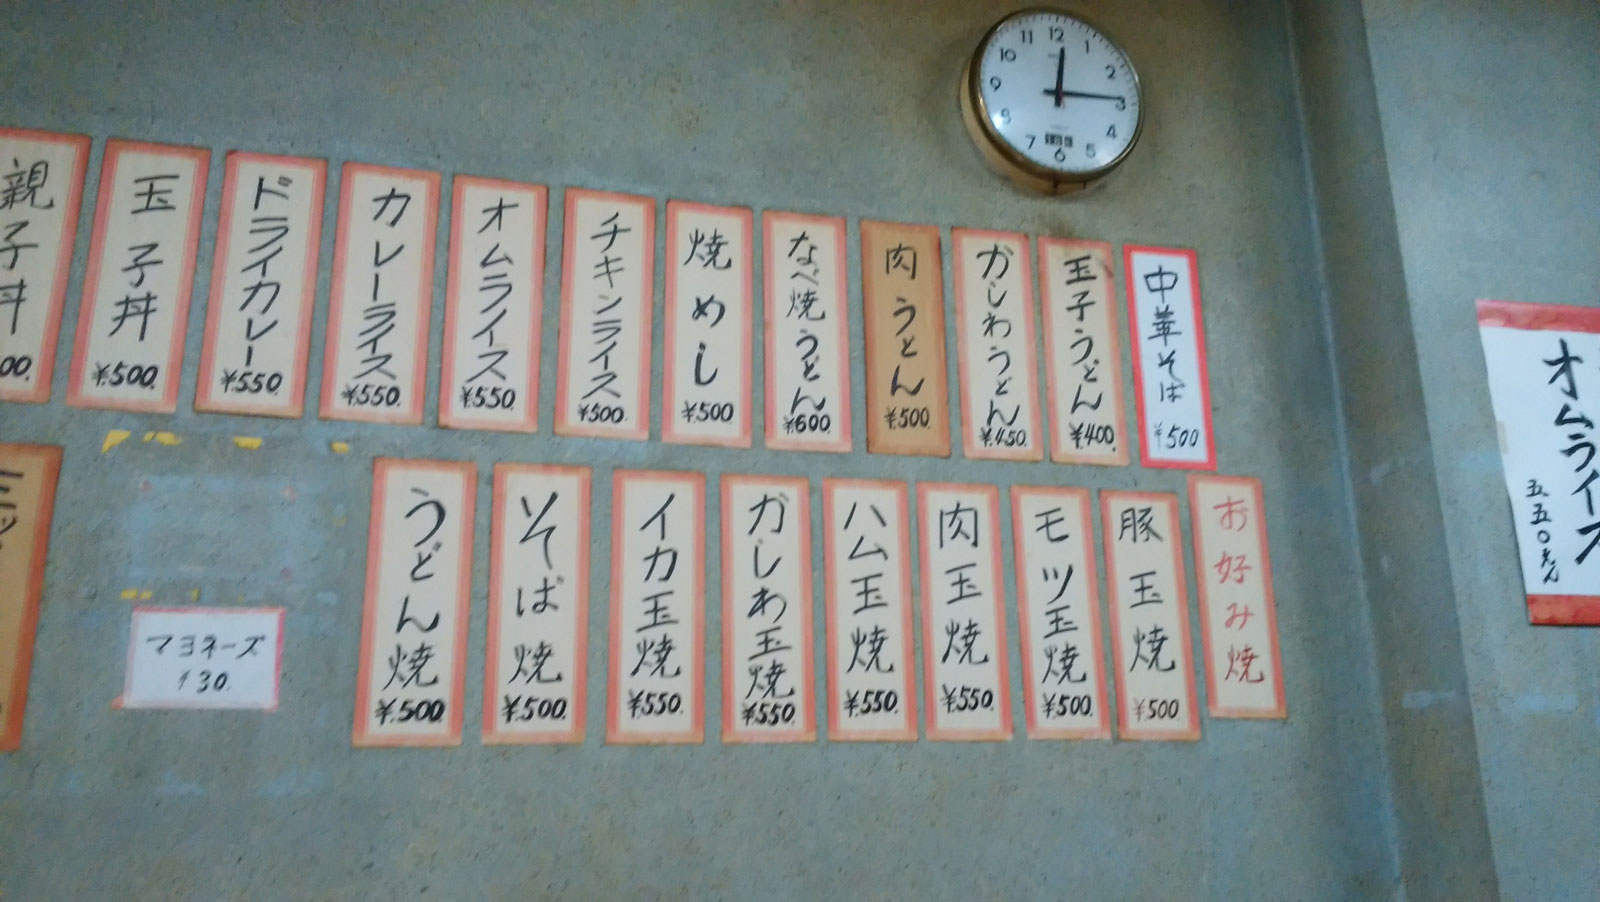 12
1
2
3
4
5
6
7
8
9
10
11
中華そば
¥500
玉子うどん
¥400.
かしわうどん
¥450.
肉うどん
¥500
なべ焼うどん
¥600.
焼めし
¥500
チキンライス
¥500.
オムライス
¥550.
カレーライス
¥550.
ドライカレー
¥550
玉子丼
¥500.
親子丼
お好み焼
豚玉焼
¥500
モツ玉焼
¥500.
肉玉焼
¥550.
ハム玉焼
¥550.
かしわ玉焼
¥550.
イカ玉焼
¥550.
そば焼
¥500.
うどん焼
¥500.
マヨネーズ
¥30.
オムライス
五.五〇えん